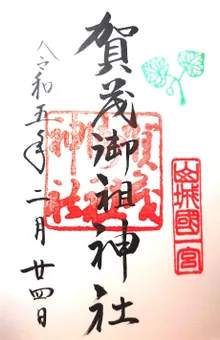 山城國一宮
賀茂御祖神社
賀茂御祖神社
令和五年二月廿四日